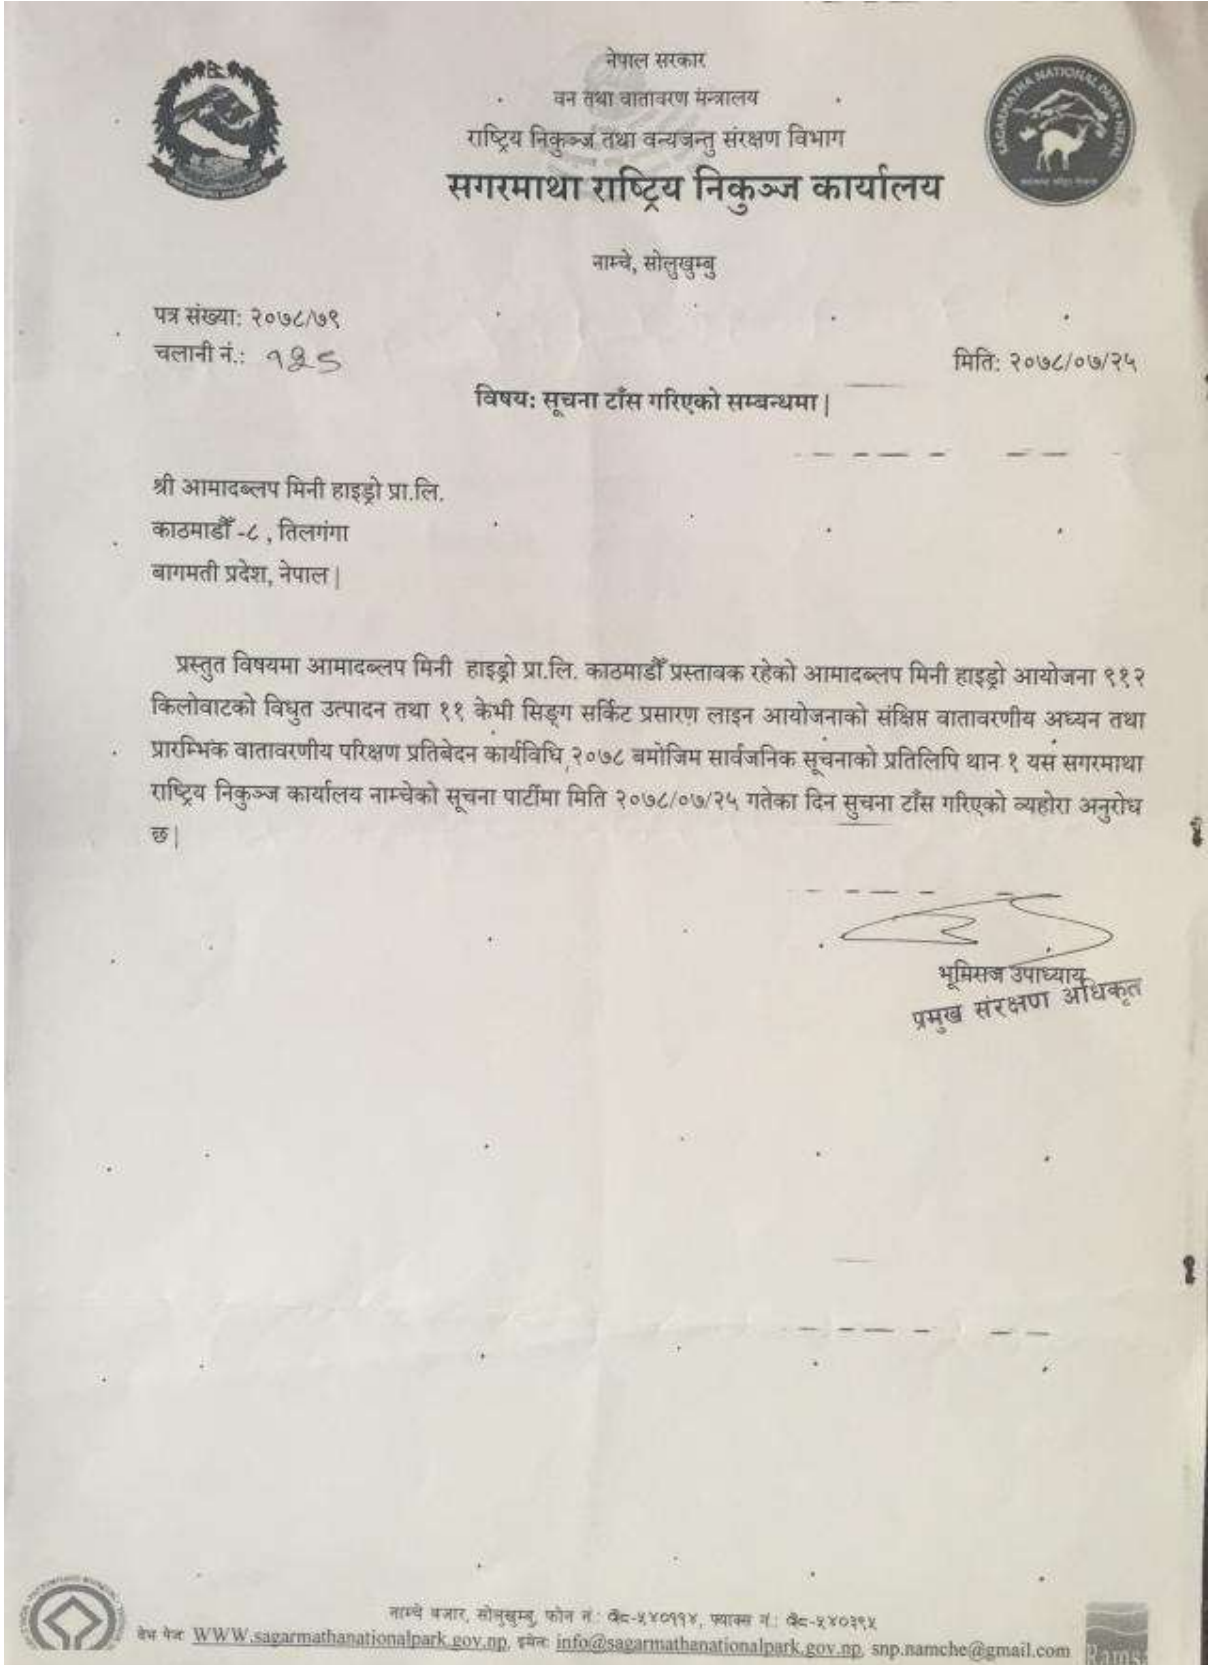 नेपाल सरकार
वन तथा वातावरण मन्त्रालय
राष्ट्रिय निकुञ्ज तथा वन्यजन्तु संरक्षण विभाग
सगरमाथा राष्ट्रिय निकुञ्ज कार्यालय
SAGARMATHA NATIONAL PARK NEPAL
नाम्चे, सोलुखुम्बु
पत्र संख्या: २०७८/७९
चलानी नं.:
मिति: २०७८/०७/२५
विषय: सूचना टाँस गरिएको सम्बन्धमा |
श्री आमादब्लप मिनी हाइड्रो प्रा.लि.
काठमाडौँ -८ , तिलगंगा
बागमती प्रदेश, नेपाल |
प्रस्तुत विषयमा आमादब्लप मिनी हाइड्रो प्रा.लि. काठमाडौँ प्रस्तावक रहेको आमादब्लप मिनी हाइड्रो आयोजना ९१२
किलोवाटको विधुत उत्पादन तथा ११ केभी सिङ्ग सर्किट प्रसारण लाइन आयोजनाको संक्षिप्त वातावरणीय अध्यन तथा
प्रारम्भिक वातावरणीय परिक्षण प्रतिबेदन कार्यविधि २०७८ बमोजिम सार्वजनिक सूचनाको प्रतिलिपि थान १ यस सगरमाथा
राष्ट्रिय निकुञ्ज कार्यालय नाम्चेको सूचना पार्टीमा मिति २०७८/०७/२५ गतेका दिन सुचना टाँस गरिएको व्यहोरा अनुरोध
छ |
भूमिराज उपाध्याय
प्रमुख संरक्षण अधिकृत
नाम्चे बजार, सोलुखुम्बु, फोन नं: ०३८-५४०११४, फ्याक्स नं: ०३८-५४०३९५
वेभ पेज: WWW.sagarmathanationalpark.gov.np, इमेल: info@sagarmathanationalpark.gov.np, snp.namche@gmail.com